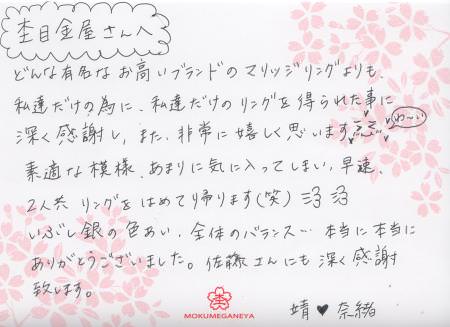 杢目金屋さんへ
どんな有名なお高いブランドのマリッジリングよりも、
私達だけの為に、私達だけのリングを得られた事に
深く感謝し、また、非常に嬉しく思います
わ〜い
素適な模様、あまりに気に入ってしまい、早速、
2人共リングをはめて帰ります(笑)
いぶし銀の色あい、全体のバランス… 本当に本当に
ありがとうございました。佐藤さんにも深く感謝
致します。
靖♥奈緒
MOKUMEGANEYA